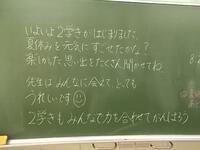 いよいよ2学きがはじまりました。
夏休みを元気にすごせたかな？
楽しかった思い出をたくさん聞かせてね
先生はみんなに会えて、とっても
うれしいです
2学きもみんなで力を合わせてがんばろう